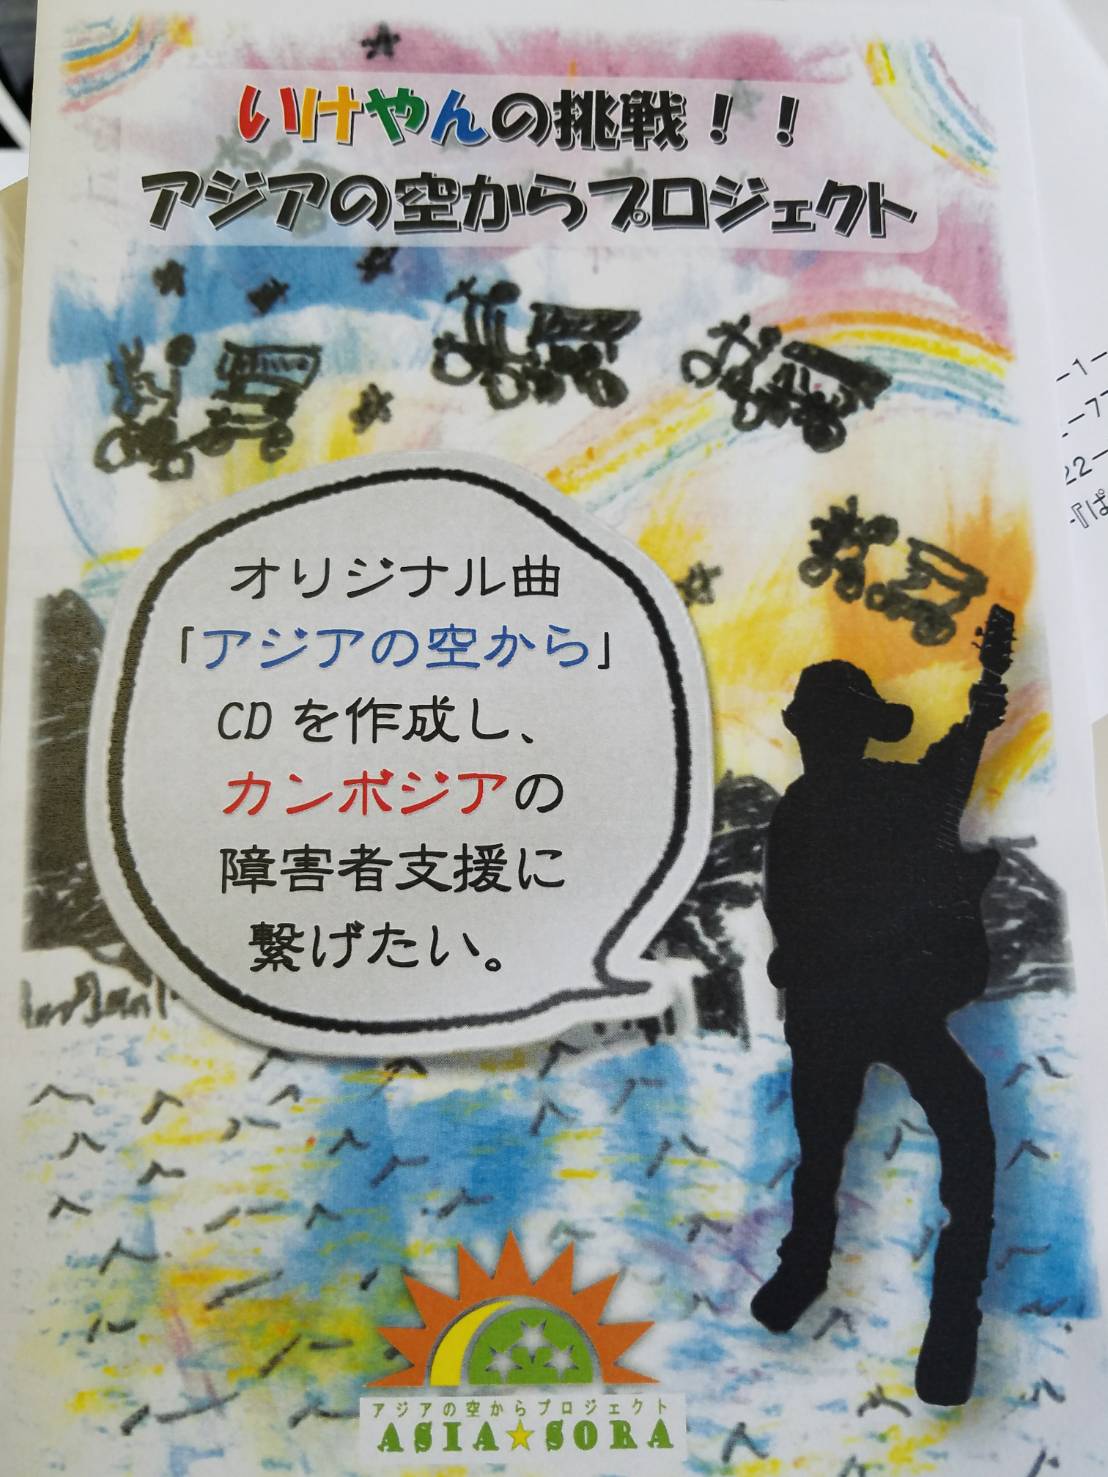 いけやんの挑戦！！
アジアの空からプロジェクト
オリジナル曲
「アジアの空から」
CDを作成し、
カンボジアの
障害者支援に
繋げたい。
アジアの空からプロジェクト
ASIA★SORA
-1-
22-
『ぱ